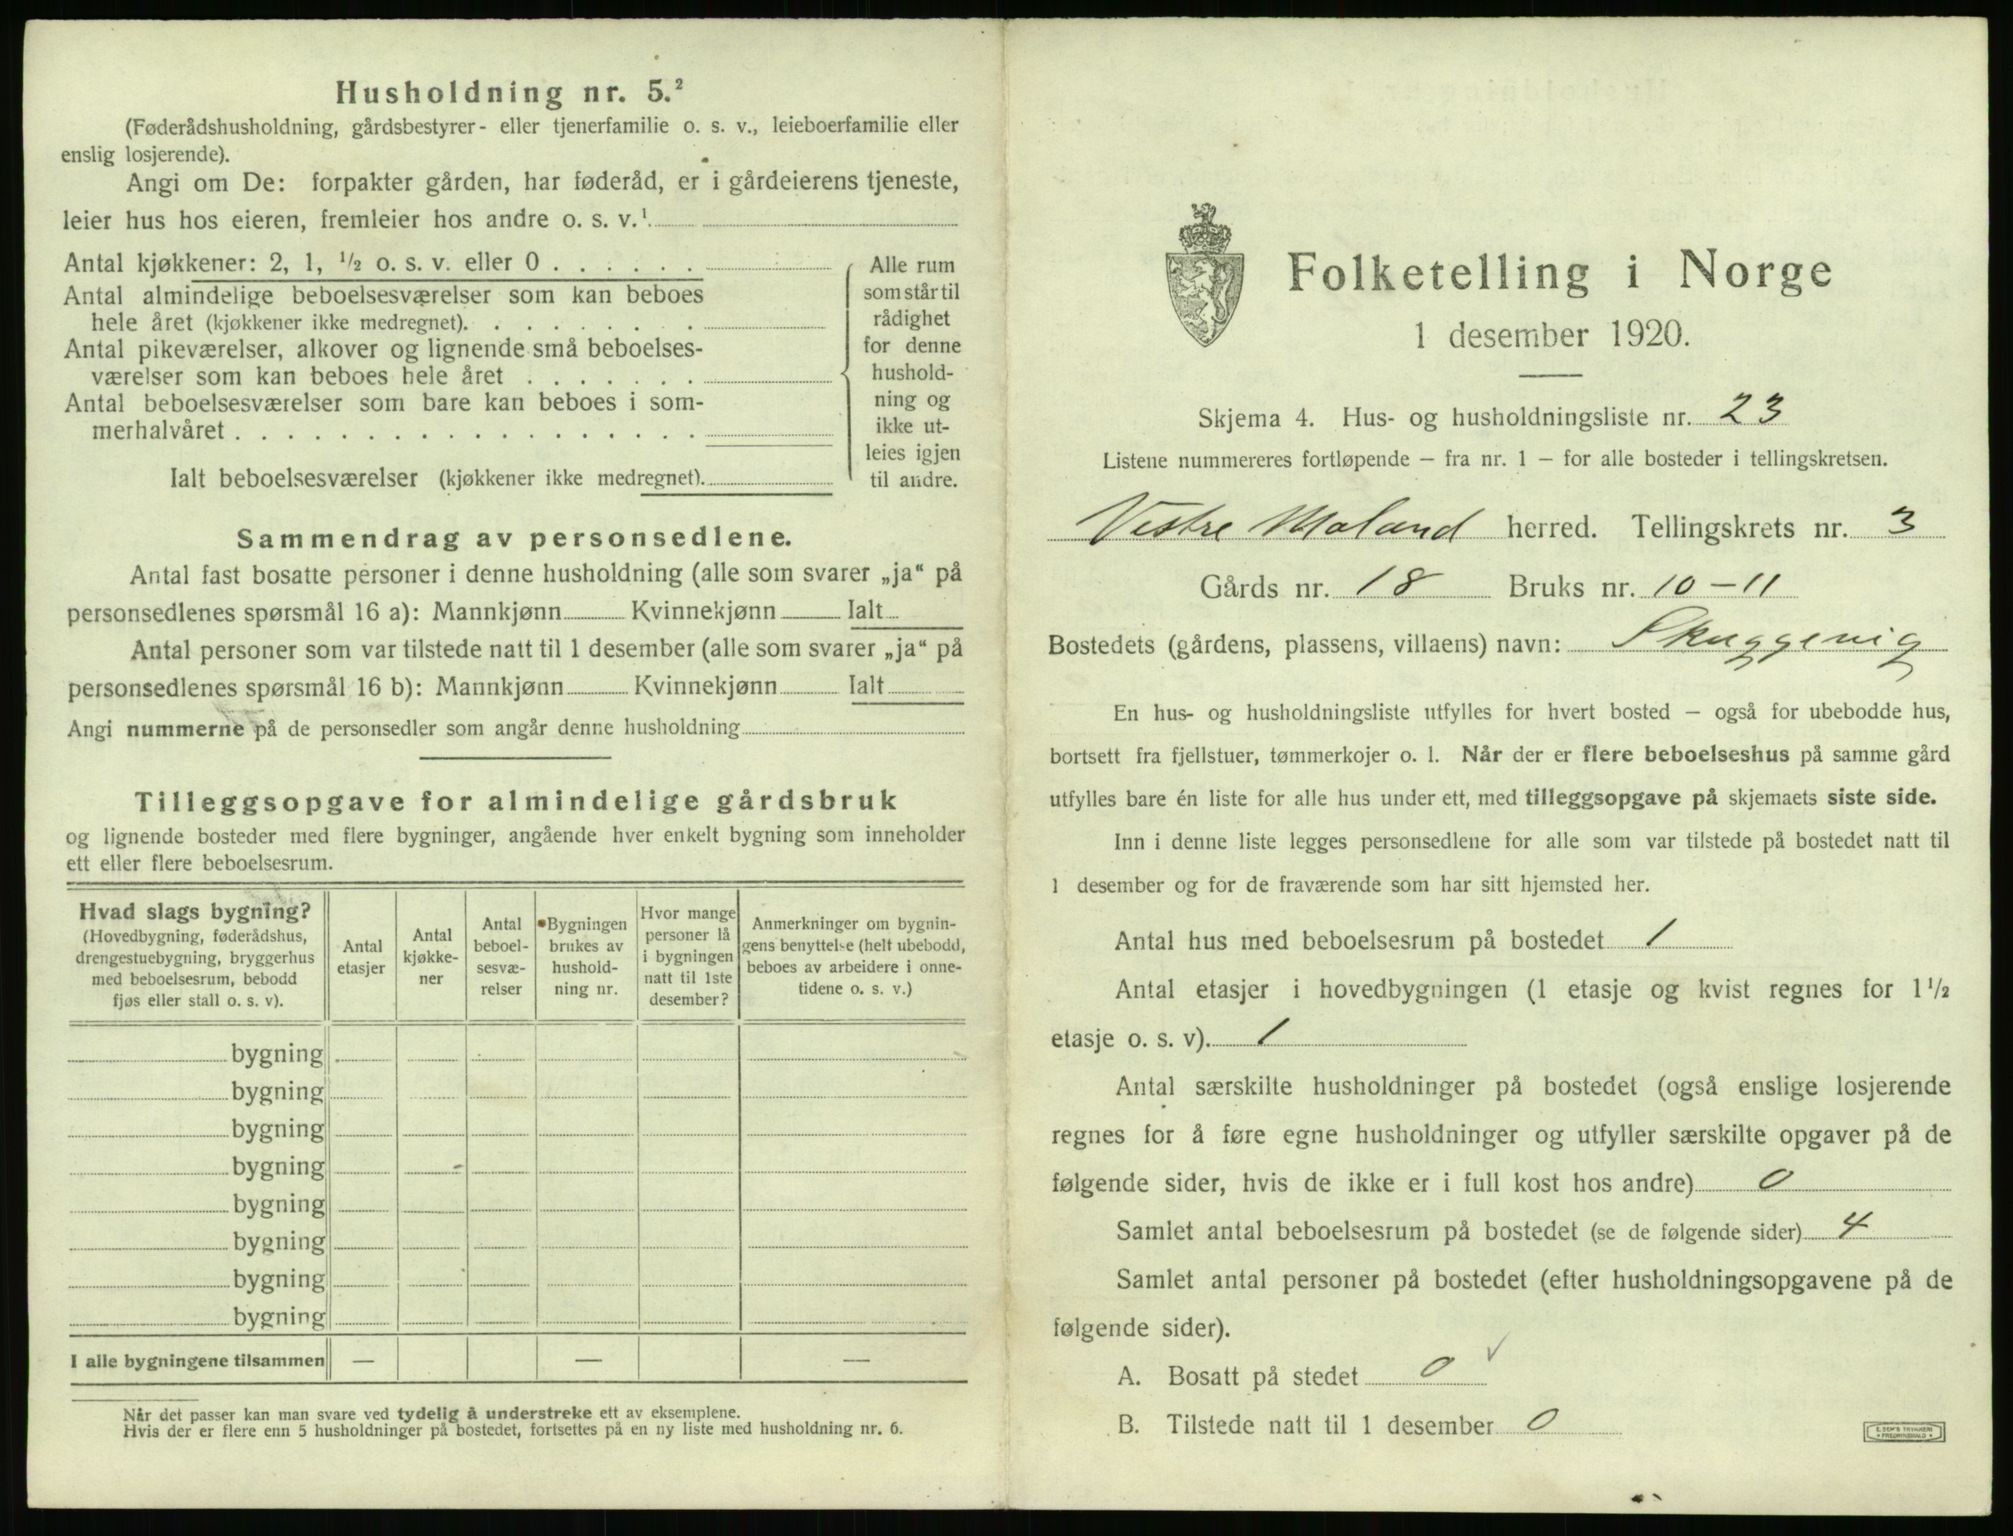 Husholdning nr. 5.²
(Føderådshusholdning, gårdsbestyrer- eller tjenerfamilie o. s. v., leieboerfamilie eller
enslig losjerende).
Angi om De: forpakter gården, har føderåd, er i gårdeierens tjeneste,
leier hus hos eieren, fremleier hos andre o. s. v.¹
Antal kjøkkener: 2, 1, ½ o. s. v. eller 0 . . . . . .
Antal almindelige beboelsesværelser som kan beboes
hele året (kjøkkener ikke medregnet). . . . . . . . .
Antal pikeværelser, alkover og lignende små beboelses-
værelser som kan beboes hele året . . . . . . .
Antal beboelsesværelser som bare kan beboes i som-
merhalvåret . . . . . . . . . . . . . . . . . .
Ialt beboelsesværelser (kjøkkener ikke medregnet).
Alle rum
som står til
rådighet
for denne
hushold-
ning og
ikke ut-
leies igjen
til andre.
Sammendrag av personsedlene.
Antal fast bosatte personer i denne husholdning (alle som svarer „ja“ på
personsedlenes spørsmål 16 a): Mannkjønn Kvinnekjønn Ialt
Antal personer som var tilstede natt til 1 desember (alle som svarer „ja“ på
personsedlenes spørsmål 16 b): Mannkjønn Kvinnekjønn Ialt
Angi nummerne på de personsedler som angår denne husholdning
Tilleggsopgave for almindelige gårdsbruk
og lignende bosteder med flere bygninger, angående hver enkelt bygning som inneholder
ett eller flere beboelsesrum.
Hvad slags bygning?
(Hovedbygning, føderådshus,
drengestuebygning, bryggerhus
med beboelsesrum, bebodd
fjøs eller stall o. s. v).
Antal
etasjer
Antal
kjøkke-
ner
Antal
beboel-
sesvæ-
relser
Bygningen
brukes av
hushold-
ning nr.
Hvor mange
personer lå
i bygningen
natt til 1ste
desember?
Anmerkninger om bygnin-
gens benyttelse (helt ubebodd,
beboes av arbeidere i onne-
tidene o. s. v.)
bygning
bygning
bygning
bygning
bygning
bygning
bygning
bygning
I alle bygningene tilsammen — — —
Når det passer kan man svare ved tydelig å understreke ett av eksemplene.
Hvis der er flere enn 5 husholdninger på bostedet, fortsettes på en ny liste med husholdning nr. 6.
Folketelling i Norge
1 desember 1920.
Skjema 4. Hus- og husholdningsliste nr. 23
Listene nummereres fortløpende – fra nr. 1 – for alle bosteder i tellingskretsen.
Vestre Moland herred. Tellingskrets nr. 3
Gårds nr. 18 Bruks nr. 10-11
Bostedets (gårdens, plassens, villaens) navn: Skuggevig
En hus- og husholdningsliste utfylles for hvert bosted – også for ubebodde hus,
bortsett fra fjellstuer, tømmerkojer o. l. Når der er flere beboelseshus på samme gård
utfylles bare én liste for alle hus under ett, med tilleggsopgave på skjemaets siste side.
Inn i denne liste legges personsedlene for alle som var tilstede på bostedet natt til
1 desember og for de fraværende som har sitt hjemsted her.
Antal hus med beboelsesrum på bostedet 1
Antal etasjer i hovedbygningen (1 etasje og kvist regnes for 1½
etasje o. s. v). 1
Antal særskilte husholdninger på bostedet (også enslige losjerende
regnes for å føre egne husholdninger og utfyller særskilte opgaver på de
følgende sider, hvis de ikke er i full kost hos andre) 0
Samlet antal beboelsesrum på bostedet (se de følgende sider) 4
Samlet antal personer på bostedet (efter husholdningsopgavene på de
følgende sider).
A. Bosatt på stedet 0 ✓
B. Tilstede natt til 1 desember 0
E. SEM'S TRYKKERI
FREDRIKSHALD